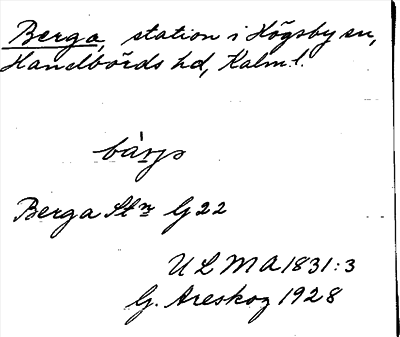 Berga, station i Högsby sn,
Handbörds hd, Kalm. l.
Berga Stn G 22
ULMA 1831:3
G. Areskog 1928